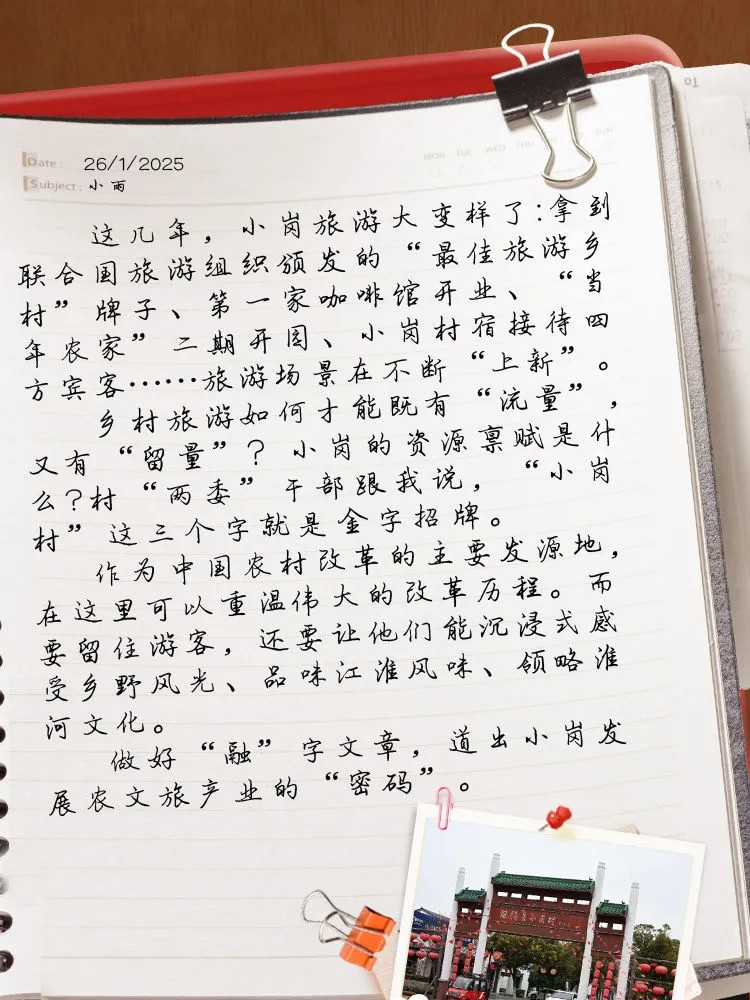 To
MON TUE WED THU FRI SAT SUN
Date: 26/1/2025
Subject: 小雨
这几年，小岗旅游大变样了：拿到
联合国旅游组织颁发的“最佳旅游乡
村”牌子、第一家咖啡馆开业、“当
年农家”二期开园、小岗村宿接待四
方宾客······旅游场景在不断“上新”。
乡村旅游如何才能既有“流量”，
又有“留量”？小岗的资源禀赋是什
么？村“两委”干部跟我说，“小岗
村”这三个字就是金字招牌。
作为中国农村改革的主要发源地，
在这里可以重温伟大的改革历程。而
要留住游客，还要让他们能沉浸式感
受乡野风光、品味江淮风味、领略淮
河文化。
做好“融”字文章，道出小岗发
展农文旅产业的“密码”。
凤阳县小岗村